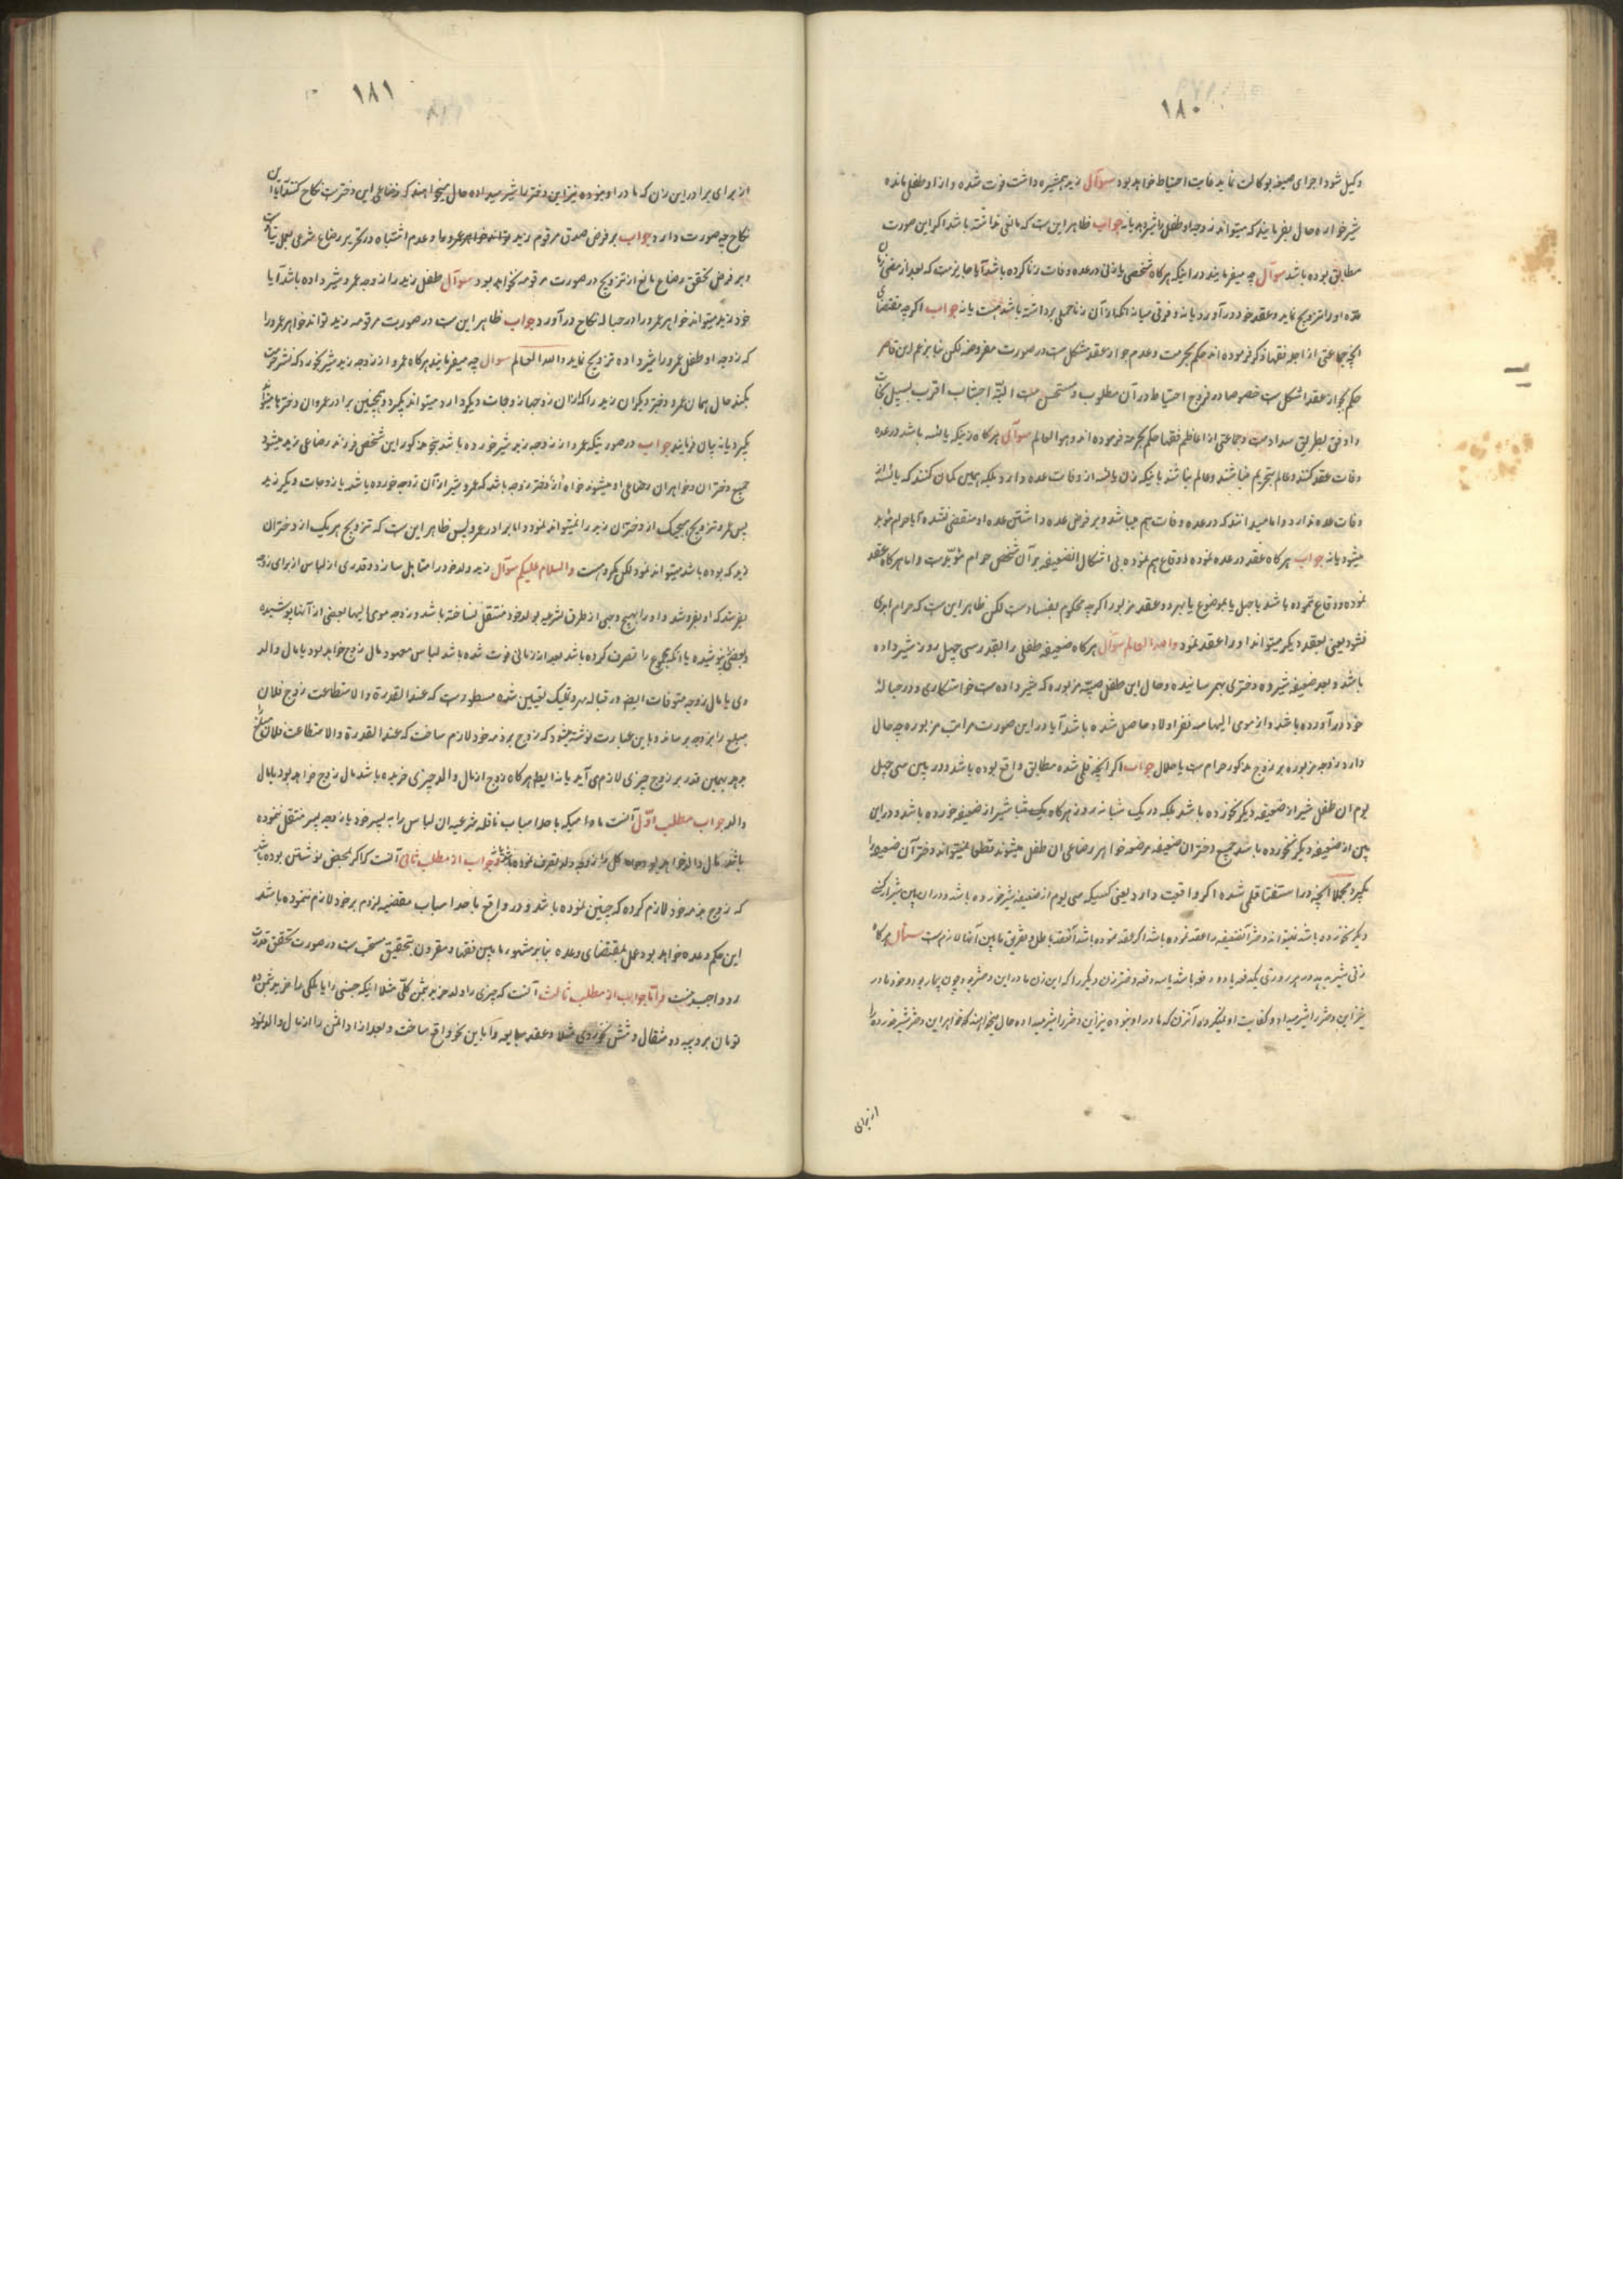 ۱۸۰
وکیل شود اجرای صیغه بوکالت نماید غایت احتیاط خواهد بود سوآل زید همشیره داشت فوت شده و از او طفلی مانده
شیرخواره حال بفرمایند که میتواند زوجه او طفل را شیر بدهد یا نه جواب ظاهر این است که مانعی نداشته باشد اگر این صورت
مطابق بوده باشد سوآل چه میفرمایند در اینکه هرکاه شخصی با زنی در عده وفات زنا کرده باشد آیا جایز است که بعد از مضی زمان
عده او را تزویج نماید و بعقد خود درآورد یا نه و فرقی میانه آنکه از آن زنا حملی برداشته باشد هست یا نه جواب اکرچه مقتضای
آنچه جماعتی از اجله فقها ذکر فرموده‌اند حکم بحرمت و عدم جواز عقد مشکل است در صورت مفروضه لکن بنا بر زعم این قاصر
حکم بجواز عقد اشکل است خصوصا در فروج احتیاط در آن مطلوب و مستحسن است البته اجتناب اقرب بسبیل نجات
و اوفق بطریق سداد است و جماعتی از اعاظم فقها حکم بحرمت فرموده‌اند و هو العالم سوآل هرکاه زنیکه یائسه باشد در عده
وفات عقد کنند و عالم بتحریم نباشند و عالم نباشند باینکه زن یائسه از وفات عده دارد بلکه همین کمان کنند که یائسه از
وفات عده ندارد و اما میدانند که در عده وفات هم میباشد و بر فرض عده داشتن عده او منقضی نشده آیا حرام مؤبد
میشود یا نه جواب هرکاه عقد در عده نموده و وقاع هم نموده بی اشکال الضعیفه بر آن شخص حرام مؤبد است و اما هرکاه عقد
نموده و وقاع ننموده باشد یا جهل یا بموضوع یا بهر دو عقد مزبور اکرچه محکوم بفساد است لکن ظاهر این است که حرام ابدی
نشود یعنی بعقد دیکر میتواند او را عقد نمود والله العالم سوآل هرکاه ضعیفه طفلی را بقدر سی چهل روز شیر داده
باشد و بعد ضعیفه شیرده دختری بهم رسانیده و حال این طفل صبیه مزبوره که شیر داده است خواستکاری و در حباله
خود درآورده باشد و از موی الیها سه نفر اولاد حاصل شده باشد آیا در این صورت مراتب مزبوره چه حال
دارد و زوجه مزبوره بر زوج مذکور حرام است یا حلال جواب اکر آنچه قلمی شده مطابق واقع بوده باشد و در بین سی چهل
یوم ان طفل شیر از ضعیفه دیکر نخورده باشد بلکه در یک شبانه روز هرکاه یک شبانه شیر از ضعیفه خورده باشد و در این
بین از ضعیفه دیکر نخورده باشد جمیع دختران ضعیفه مرضعه خواهر رضاعی ان طفل میشوند قطعا نمیتواند دختر آن ضعیفه را
بکیرد مجملا آنچه در استفتا قلمی شده اکر واقعیت دارد یعنی کسیکه سی یوم از ضعیفه شیر خورده باشد و در ان بین شیر از کس
دیکر نخورده باشد نمیتواند دختر آنضعیفه را عقد نموده باشد اکر عقد نموده باشد آنعقد باطل و تفریق مابین آنها لازم است سئوال هرکاه
زنی شیر بدهد در هر روزی یکدفعه یا دو دفعه باشد یا سه دفعه دختر زن دیکر را که این زن مادر این دختر بود چون بیمار بود و خود مادر
نیز این دختر را شیر میداد و کفایت او نمیکرده آنزن که مادر او نبوده نیز این دختر را شیر میداده حال میخواهند که خواهر این دختر شیر خورده را
از برای
۱۸۱
از برای برادر این زن که مادر او نبوده نیز این دختر را شیر میداده حال میخواهند که رضاعی این دختر است نکاح کنند آیا آن
نکاح چه صورت دارد جواب بر فرض صدق مرقوم زید تواند خواهر عمرو را و عدم اشتباه در تحریر رضاع شرعی بعمل نیامده است
و بر فرض تحقق رضاع مانع از تزویج در صورت مرقومه نخواهد بود سوآل طفل زید را زوجه عمرو شیر داده باشد آیا
خود زید میتواند خواهر عمرو را در حباله نکاح درآورد جواب ظاهر این است در صورت مرقومه زید تواند خواهر عمرو را
که زوجه او طفل عمرو را شیر داده تزویج نماید والله العالم سوال چه میفرمایند هرکاه عمرو از زوجه زید شیر بخورد که نشر حرمت
بکند حال همان عمرو دختر دیکر ان زید را که از ان زوجه یا از زوجات دیکر دارد میتواند بکیرد و همچنین برادر عمرو ان دختر را میتواند
بکیرد یا نه بیان فرمایند جواب در صورتیکه عمرو از زوجه زید شیر خورده باشد بنهج مذکور این شخص فرزند رضاعی زید میشود
جمیع دختران و خواهران رضاعی او میشوند خواه از دختر زوجه باشد که عمرو شیر از آن زوجه خورده باشد یا زوجات دیکر زید
پس عمرو تزویج هیچیک از دختران زید را نمیتواند نمود و اما برادر عمرو پس ظاهر این است که تزویج هریک از دختران
زید که بوده باشد میتواند نمود لکن مکروه است والسلام علیکم سوآل زید ولد خود را متاهل سازد و قدری از لباس از برای زوجه
بفرستد که او بفروشد و او را بهیچ وجهی از طرق شرعیه بولد خود منتقل نساخته باشد و زوجه موی الیها بعضی از آنها پوشیده
و بعضی نپوشیده یا آنکه مجموع را تصرف کرده باشد بعد از زمانی فوت شده باشد لباس معهود مال زوج خواهد بود یا مال والد
وی یا مال زوجه متوفات ایضا در قباله مهر و تملیک تعیین شده مسطور است که عند القدرة والاستطاعت زوج فلان
مبلغ را بزوجه برساند و باین عبارت نوشته میشود که زوج بر ذمه خود لازم ساخت که عند القدرة والاستطاعت فلان مبلغ را
بدهد بهمین قدر بر زوج چیزی لازم می آید یا نه ایضا هرکاه زوج از مال والد چیزی خریده باشد مال زوج خواهد بود یا مال
والد جواب مطلب اوّل آنست مادامیکه باحد اسباب ناقله شرعیه ان لباس را به پسر خود یا زوجه پسر منتقل ننموده
باشد مال والد خواهد بود کل را زوجه ولد تصرف نموده باشد یا نه و جواب از مطلب ثانی آنست که اکر بمحض نوشتن بوده باشد
که زوج بر ذمه خود لازم کرده که چنین نموده باشد و در واقع باحد اسباب مقتضیه لزوم بر خود لازم ننموده باشد
این حکم وعده خواهد بود عمل بمقتضای وعده بنابر مشهور مابین فقها و مقرون بتحقیق مستحب است در صورت تحقق قدرت
رد و واجب نیست و امّا جواب از مطلب ثالث آنست که چیزی را ولد خرید بثمن کلّی مثلا اینکه جنسی را یا ملکی را خرید بثمن ده
تومان بر ذمه ده مثقال و شش نخودی مثلا و عقد مبایعه را باین نحو واقع ساخت و بعد از ان ثمن را از مال والد نمود